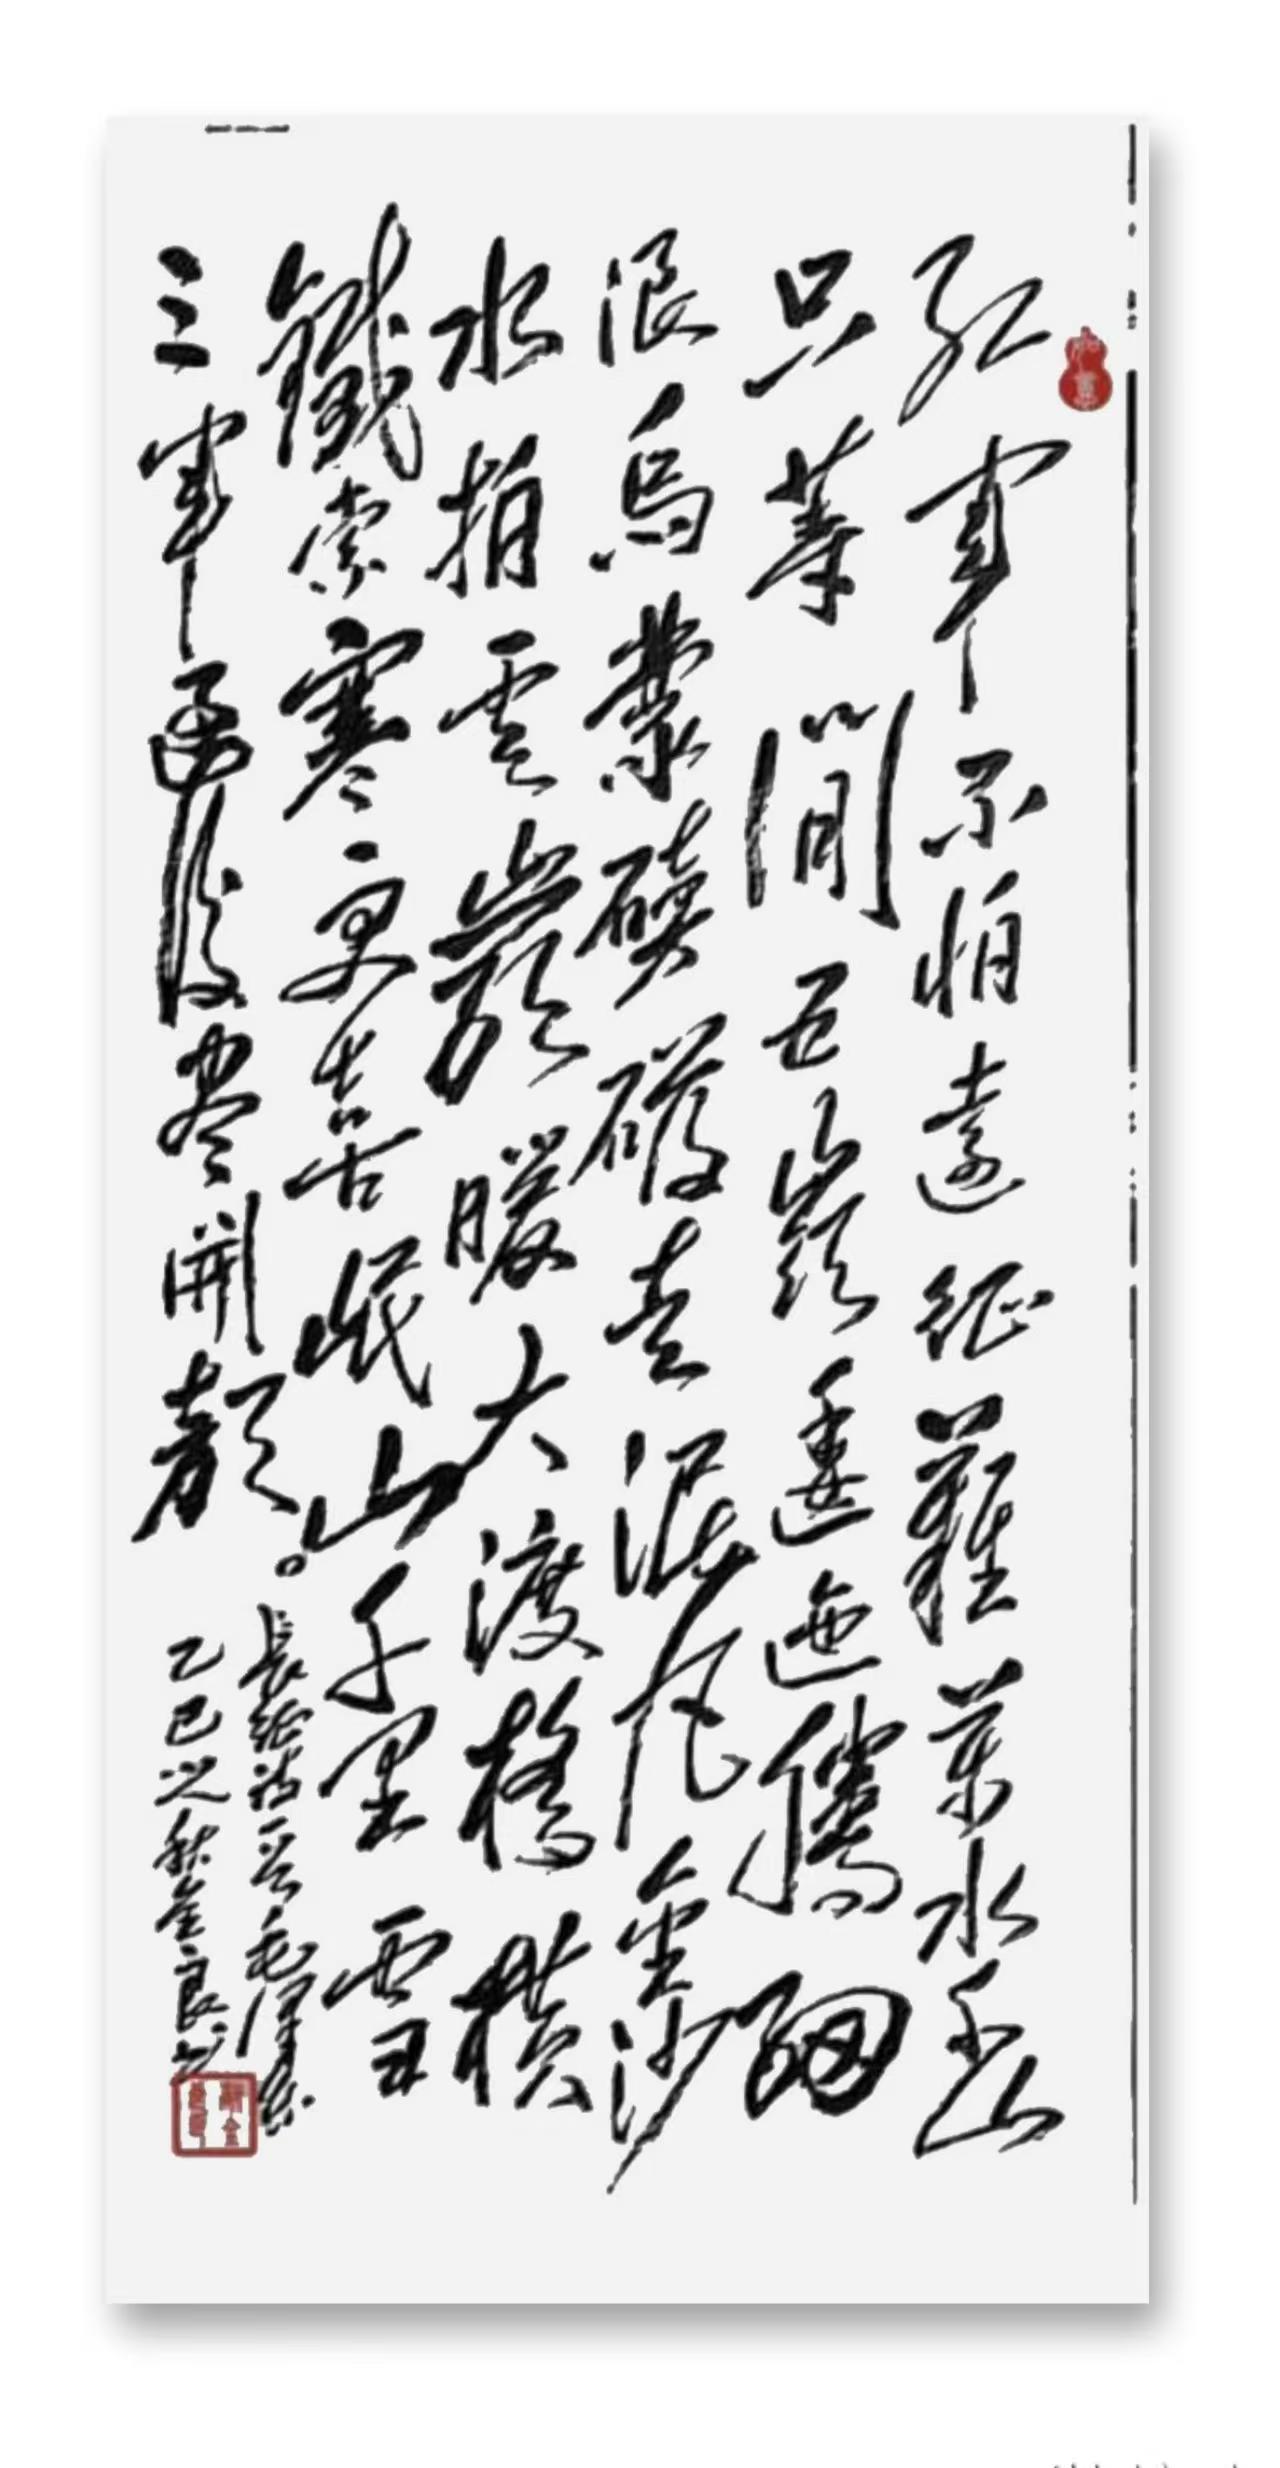 紅軍不怕遠征難萬水千山
只等閒五嶺逶迤騰細
浪烏蒙磅礴走泥丸金沙
水拍雲巖暖大渡橋橫
鐵索寒更喜岷山千里雪
三軍過後盡開顏。
長征詩一首毛澤東
乙巳之秋金良書